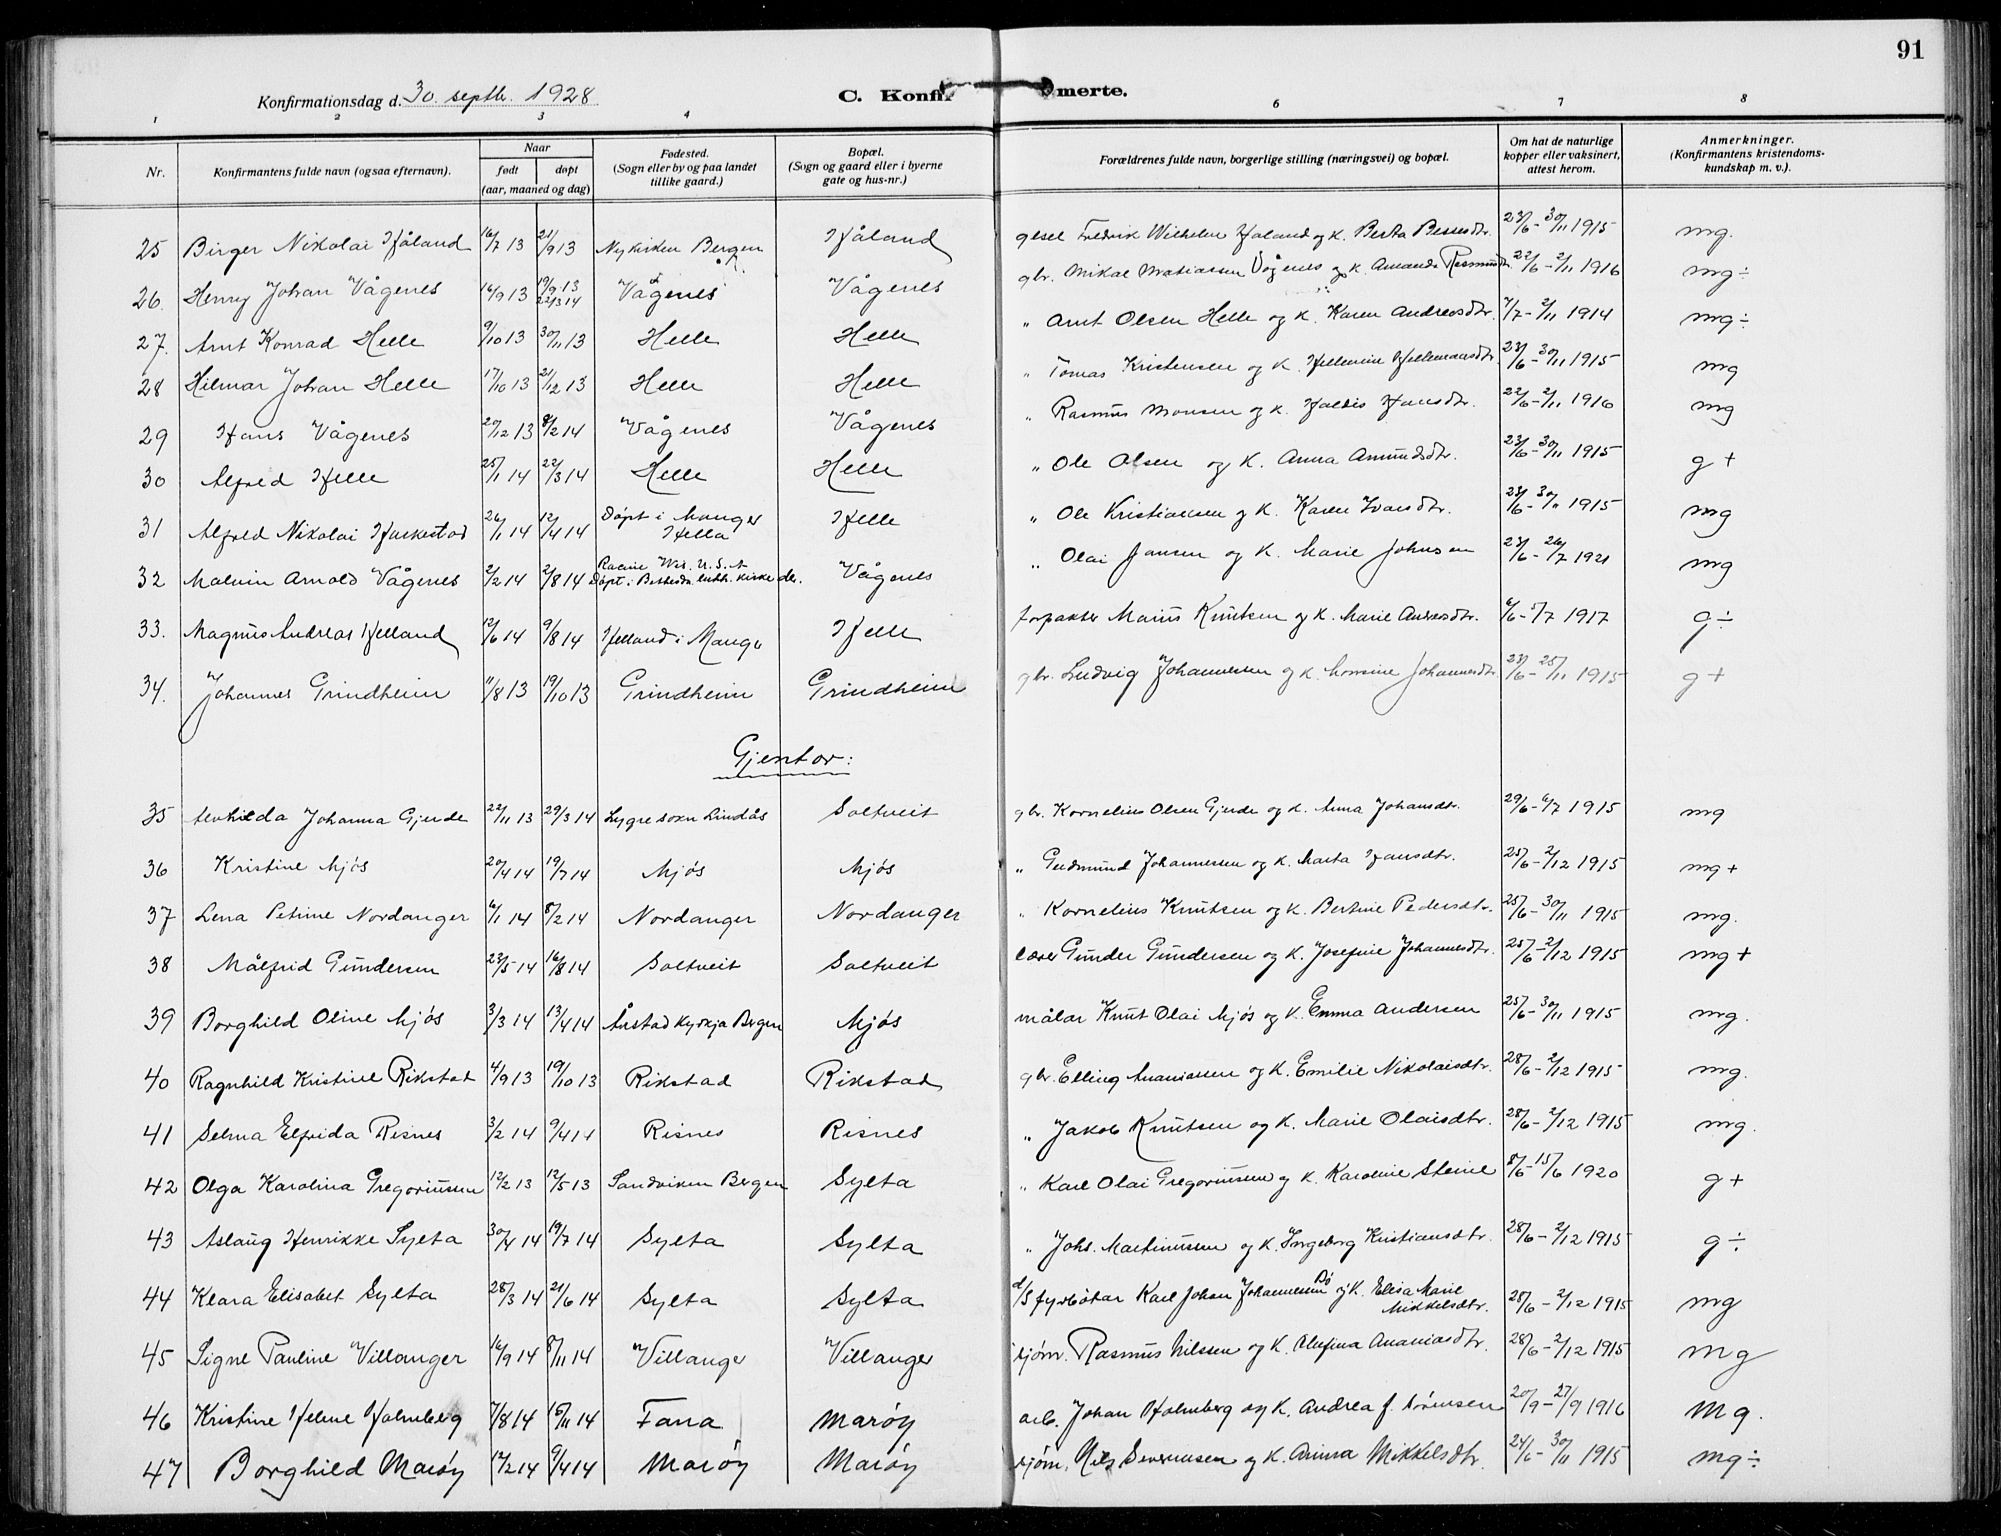 91
Konfirmationsdag d. 30. septb. 1928
C. Konfir merte.
1 2 3 4 6 7 8
Nr. Konfirmantens fulde navn (ogsaa efternavn). Naar født døpt (aar, maaned og dag) Fødested. (Sogn eller by og paa landet tillike gaard.) Bopæl. (Sogn og gaard eller i byerne gate og hus-nr.) Forældrenes fulde navn, borgerlige stilling (næringsvei) og bopæl. Om hat de naturlige kopper eller vaksinert, attest herom. Anmerkninger. (Konfirmantens kristendoms- kundskap m. v.).
25 Birger Nikolai Håland 16/7 13 21/9 13 Nykirken Bergen Håland gesel Fredrik Wilhelm Haland og k. Berta Bessesdtr. 23/6 - 30/11 1915 mg.
26. Henry Johan Vågenes 16/9 13 19/9 13 22/3 14 Vågenes Vågenes gbr. Mikal Matiassen Vågenes og k. Amanda Rasmusdtr 22/6 - 2/11 1916 mg÷
27. Arnt Konrad Helle 9/10 13 30/11 13 Helle Helle " Arnt Olsen Helle og k. Karen Andreasdtr. 7/7 - 2/11 1914 mg÷
28 Hilmar Johan Helle 17/10 13 21/12 13 Helle Helle " Tomas Kristensen og k. 23/6 - 30/11 1915 mg
29 Hans Vågenes 20/12 13 8/2 14 Vågenes Vågenes " Rasmus Monsen og k. Haldis Hansdtr. 22/6 - 2/11 1916 mg
30 Alfred Helle 25/1 14 22/3 14 Helle Helle " Ole Olsen og k. Anna Amundsdtr. 23/6 - 30/11 1915 g+
31 Alfred Nikolai Harkestad 26/1 14 12/4 14 Døpt i Manger Hella Helle " Ole Kristiansen og k. Karen Ivarsdtr. 23/6 - 30/11 1915 mg
32 Malvin Arnold Vågenes 2/2 14 2/8 14 Racine Wis. U.S.A Døpt i Bethesda luth. kirke der. Vågenes " Olai Jansen og k. Marie Johnsen 23/6 - 26/7 1921 mg
33. Magnus Andreas Helland 12/6 14 9/8 14 Helland i Manger Helle forpakter Marius Knutsen og k. Marie Andreasdtr. 6/6 - 5/7 1917 g÷
34. Johannes Grindheim 11/8 13 19/10 13 Grindheim Grindheim gbr. Ludvig Johannessen og k. Monsine Johannesdtr 23/6 - 25/11 1915 g+
Gjentor:
35 Alvhilda Johanna Gjerde 22/11 13 29/3 14 Lygre sokn Lindås Soltveit gbr. Kornelius Olsen Gjerde og k. Anna Johansdtr. 29/6 - 6/7 1915 mg
36 Kristine Mjøs 20/4 14 19/7 14 Mjøs Mjøs " Gudmund Johannessen og k. Marta Hansdtr. 25/6 - 2/12 1915 mg+
37 Lena Petrine Nordanger 6/1 14 8/2 14 Nordanger Nordanger " Kornelius Knutsen og k. Bertine Pedersdtr. 25/6 - 30/11 1915 mg.
38 Målfrid Gundersen 23/5 14 16/8 14 Soltveit Soltveit lærer Gunder Gundersen og k. Josefine Johannesdtr. 25/6 - 2/12 1915 mg+
39 Borghild Oline Mjøs 3/3 14 13/4 14 Årstad kyrkja Bergen Mjøs målar Knut Olai Mjøs og k. Emma Andersen 25/6 - 30/11 1915 mg.
40 Ragnhild Kristine Rikstad 4/9 13 19/10 13 Rikstad Rikstad gbr. Elling Ananiassen og k. Emilie Nikolaisdtr. 28/6 - 2/12 1915 mg.
41 Selma Elfrida Risnes 3/2 14 9/4 14 Risnes Risnes " Jakob Knutsen og k. Marie Olaisdtr. 28/6 - 2/12 1915 mg.
42 Olga Karolina Gregoriussen 12/2 13 12/5 13 Sandviken Bergen Sylta " Karl Olai Gregoriussen og k. Karoline Steine 8/6 - 15/6 1920 g+
43 Aslaug Henrikke Sylta 30/4 14 19/7 14 Sylta Sylta " Johs. Martinussen og k. Ingeborg Kristiansdtr. 28/6 - 2/12 1915 g÷
44 Klara Elisabet Sylta 28/3 14 21/6 14 Sylta Sylta d/s fyrbøtar Karl Johan Johannessen Bø og k. Elisa Marie Mikkelsdtr. 28/6 - 2/12 1915 mg
45 Signe Pauline Villanger 16/9 14 8/11 14 Villanger Villanger sjøm. Rasmus Nilssen og k. Olufina Ananiasdtr. 28/6 - 2/12 1915 mg
46 Kristine Helene Holmberg 7/8 14 15/11 14 Fana Marøy arb. Johan Holmberg og k. Andrea f. Sørensen 20/9 - 27/9 1916 mg.
47 Borghild Marøy 12/2 14 9/4 14 Marøy Marøy sjøm. Nils Severinsen og k. Anna Mikkelsdtr. 24/6 - 30/11 1915 mg÷